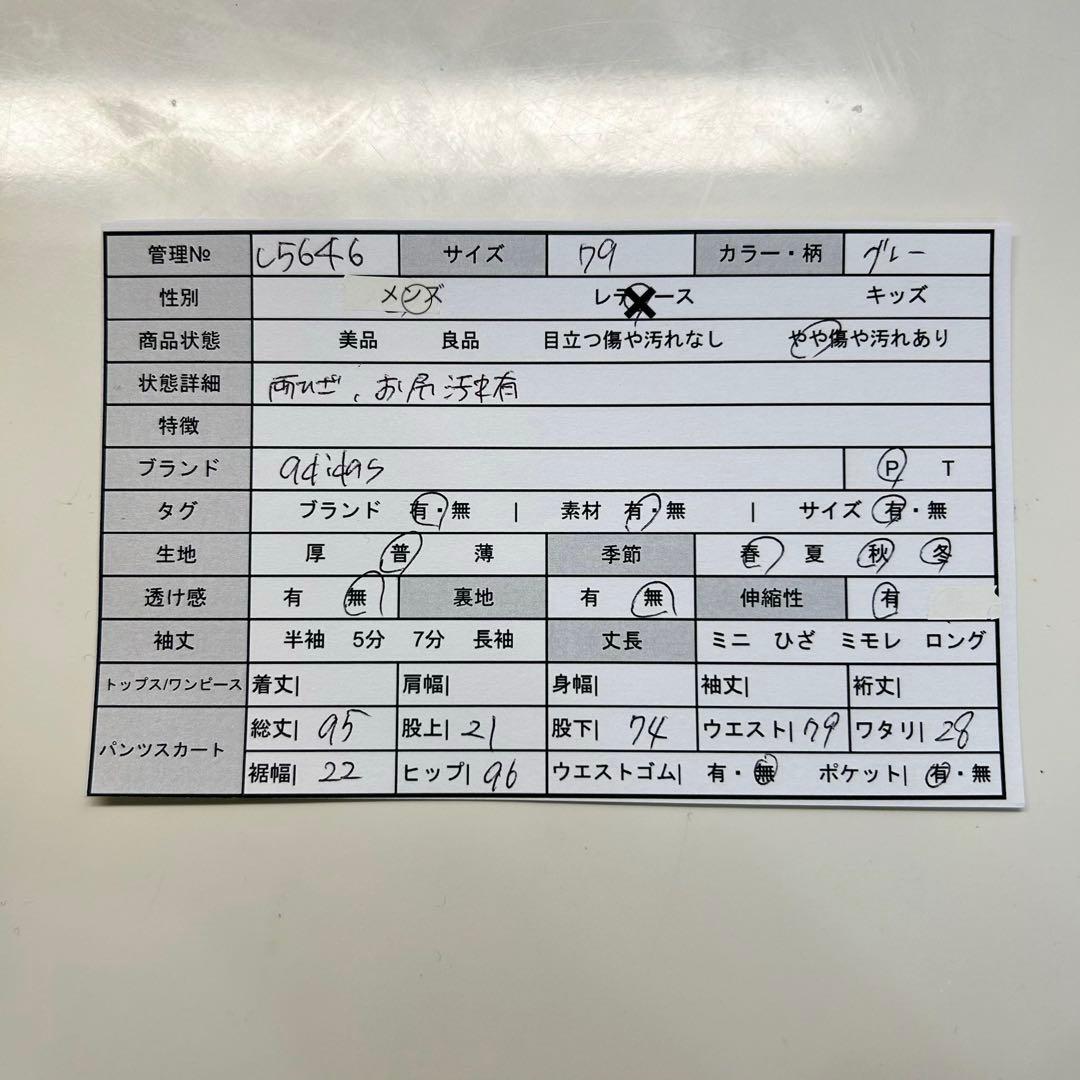 管理№ し5646 サイズ 79 カラー・柄 グレー
性別 メンズ レディース キッズ
商品状態 美品 良品 目立つ傷や汚れなし やや傷や汚れあり
状態詳細 両ひざ、お尻汚れ有
特徴
ブランド adidas P T
タグ ブランド 有・無 | 素材 有・無 | サイズ 有・無
生地 厚 普 薄 季節 春 夏 秋 冬
透け感 有 無 裏地 有 無 伸縮性 有
袖丈 半袖 5分 7分 長袖 丈長 ミニ ひざ ミモレ ロング
トップス/ワンピース 着丈| 肩幅| 身幅| 袖丈| 裄丈|
パンツスカート 総丈| 95 股上| 21 股下| 74 ウエスト| 79 ワタリ| 28
裾幅| 22 ヒップ| 96 ウエストゴム| 有・無 ポケット| 有・無